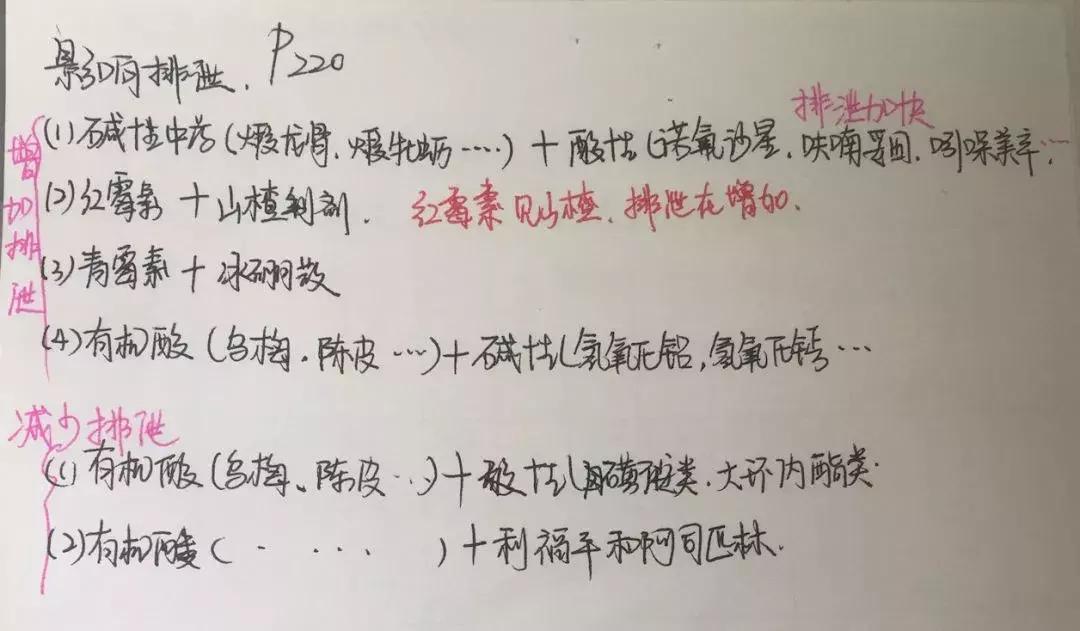 影响排泄. P220
排泄加快
(1) 碱性中药 (煅龙骨、煅牡蛎····) + 酸性 (诺氟沙星、呋喃妥因、吲哚美辛···
(2) 红霉素 + 山楂制剂. 红霉素见山楂, 排泄在增加.
增加排泄
(3) 青霉素 + 冰硼散
(4) 有机酸 (乌梅、陈皮···) + 碱性 (氢氧化铝, 氢氧化钙···
减少排泄
(1) 有机酸 (乌梅、陈皮··) + 酸性 (磺胺类、大环内酯类.
(2) 有机酸 ( · · · · ) + 利福平和阿司匹林.